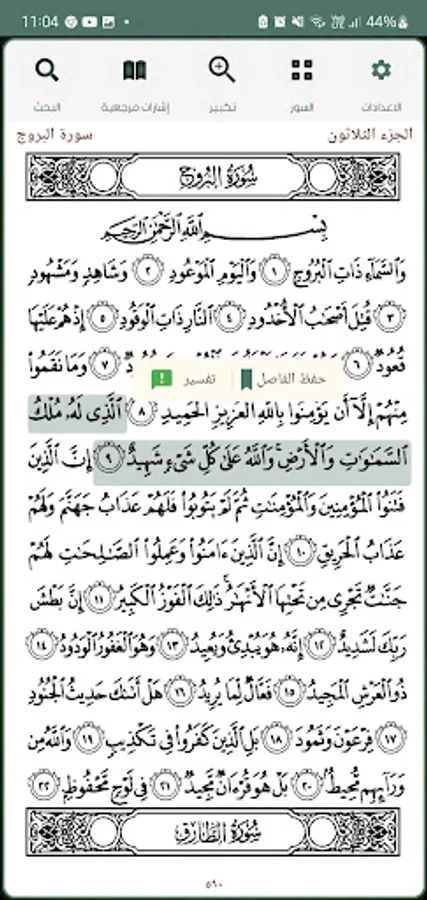 11:04
44%
الاعدادات
السور
تكبير
إشارات مرجعية
البحث
الجزء الثلاثون
سورة البروج
سُورَةُ البُرُوجِ
بِسْمِ اللَّهِ الرَّحْمَٰنِ الرَّحِيمِ
وَالسَّمَاءِ ذَاتِ الْبُرُوجِ ١ وَالْيَوْمِ الْمَوْعُودِ ٢ وَشَاهِدٍ وَمَشْهُودٍ
٣ قُتِلَ أَصْحَابُ الْأُخْدُودِ ٤ النَّارِ ذَاتِ الْوَقُودِ ٥ إِذْ هُمْ عَلَيْهَا
قُعُودٌ ٦ ٧ وَمَا نَقَمُوا
حفظ الفاصل
تفسير
مِنْهُمْ إِلَّا أَن يُؤْمِنُوا بِاللَّهِ الْعَزِيزِ الْحَمِيدِ ٨ الَّذِي لَهُ مُلْكُ
السَّمَاوَاتِ وَالْأَرْضِ وَاللَّهُ عَلَىٰ كُلِّ شَيْءٍ شَهِيدٌ ٩ إِنَّ الَّذِينَ
فَتَنُوا الْمُؤْمِنِينَ وَالْمُؤْمِنَاتِ ثُمَّ لَمْ يَتُوبُوا فَلَهُمْ عَذَابُ جَهَنَّمَ وَلَهُمْ
عَذَابُ الْحَرِيقِ ١٠ إِنَّ الَّذِينَ ءَامَنُوا وَعَمِلُوا الصَّالِحَاتِ لَهُمْ
جَنَّاتٌ تَجْرِي مِن تَحْتِهَا الْأَنْهَارُ ذَٰلِكَ الْفَوْزُ الْكَبِيرُ ١١ إِنَّ بَطْشَ
رَبِّكَ لَشَدِيدٌ ١٢ إِنَّهُ هُوَ يُبْدِئُ وَيُعِيدُ ١٣ وَهُوَ الْغَفُورُ الْوَدُودُ ١٤
ذُو الْعَرْشِ الْمَجِيدُ ١٥ فَعَّالٌ لِّمَا يُرِيدُ ١٦ هَلْ أَتَاكَ حَدِيثُ الْجُنُودِ
١٧ فِرْعَوْنَ وَثَمُودَ ١٨ بَلِ الَّذِينَ كَفَرُوا فِي تَكْذِيبٍ ١٩ وَاللَّهُ مِن
وَرَائِهِم مُّحِيطٌ ٢٠ بَلْ هُوَ قُرْءَانٌ مَّجِيدٌ ٢١ فِي لَوْحٍ مَّحْفُوظٍ ٢٢
سُورَةُ الطَّارِقِ
٥٩٠